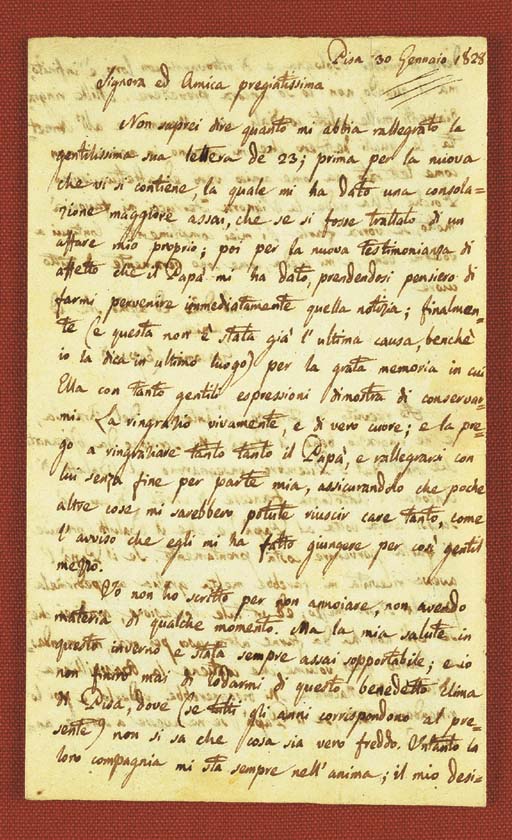 Pisa 30 Gennaio 1828
Signora ed Amica pregiatissima
Non saprei dire quanto mi abbia rallegrato la
gentilissima sua lettera de' 23; prima per la nuova
che vi si contiene, la quale mi ha dato una consola=
zione maggiore assai, che se si fosse trattato di un
affare mio proprio; poi per la nuova testimonianza di
affetto che il Papà mi ha dato, prendendosi pensiero di
farmi pervenire immediatamente quella notizia; finalmen=
te (e questa non è stata già l'ultima causa, benchè
io la dica in ultimo luogo) per la grata memoria in cui
Ella con tanto gentili espressioni dimostra di conservar=
mi. La ringrazio vivamente, e di vero cuore; e la pre=
go a ringraziare tanto tanto il Papà, e rallegrarsi con
lui senza fine per parte mia, assicurandolo che poche
altre cose mi sarebbero potute riuscir care tanto, come
l'avviso che egli mi ha fatto giungere per così gentil
mezzo.
Io non ho scritto per non annoiare, non avendo
materia di qualche momento. Ma la mia salute in
questo inverno è stata sempre assai sopportabile; e io
non finirò mai di lodarmi di questo benedetto clima
di Pisa, dove (se tutti gli anni corrispondono al pre=
sente) non si sa che cosa sia vero freddo. Intanto la
loro compagnia mi sta sempre nell'anima; il mio desi=